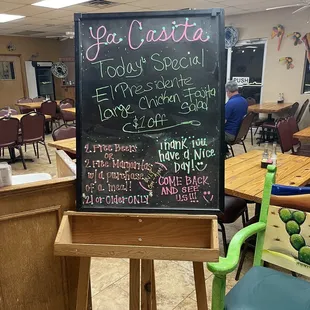 La Casita
Today's Special
El Presidente
Large Chicken Fajita
Salad
$1 off
1. Free Beer
or
2. Free Margarita
w/a purchase
of a meal!!
21 or Older ONLY
Thank you
have a Nice
Day!
COME BACK
AND SEE
US!!!
PUSH